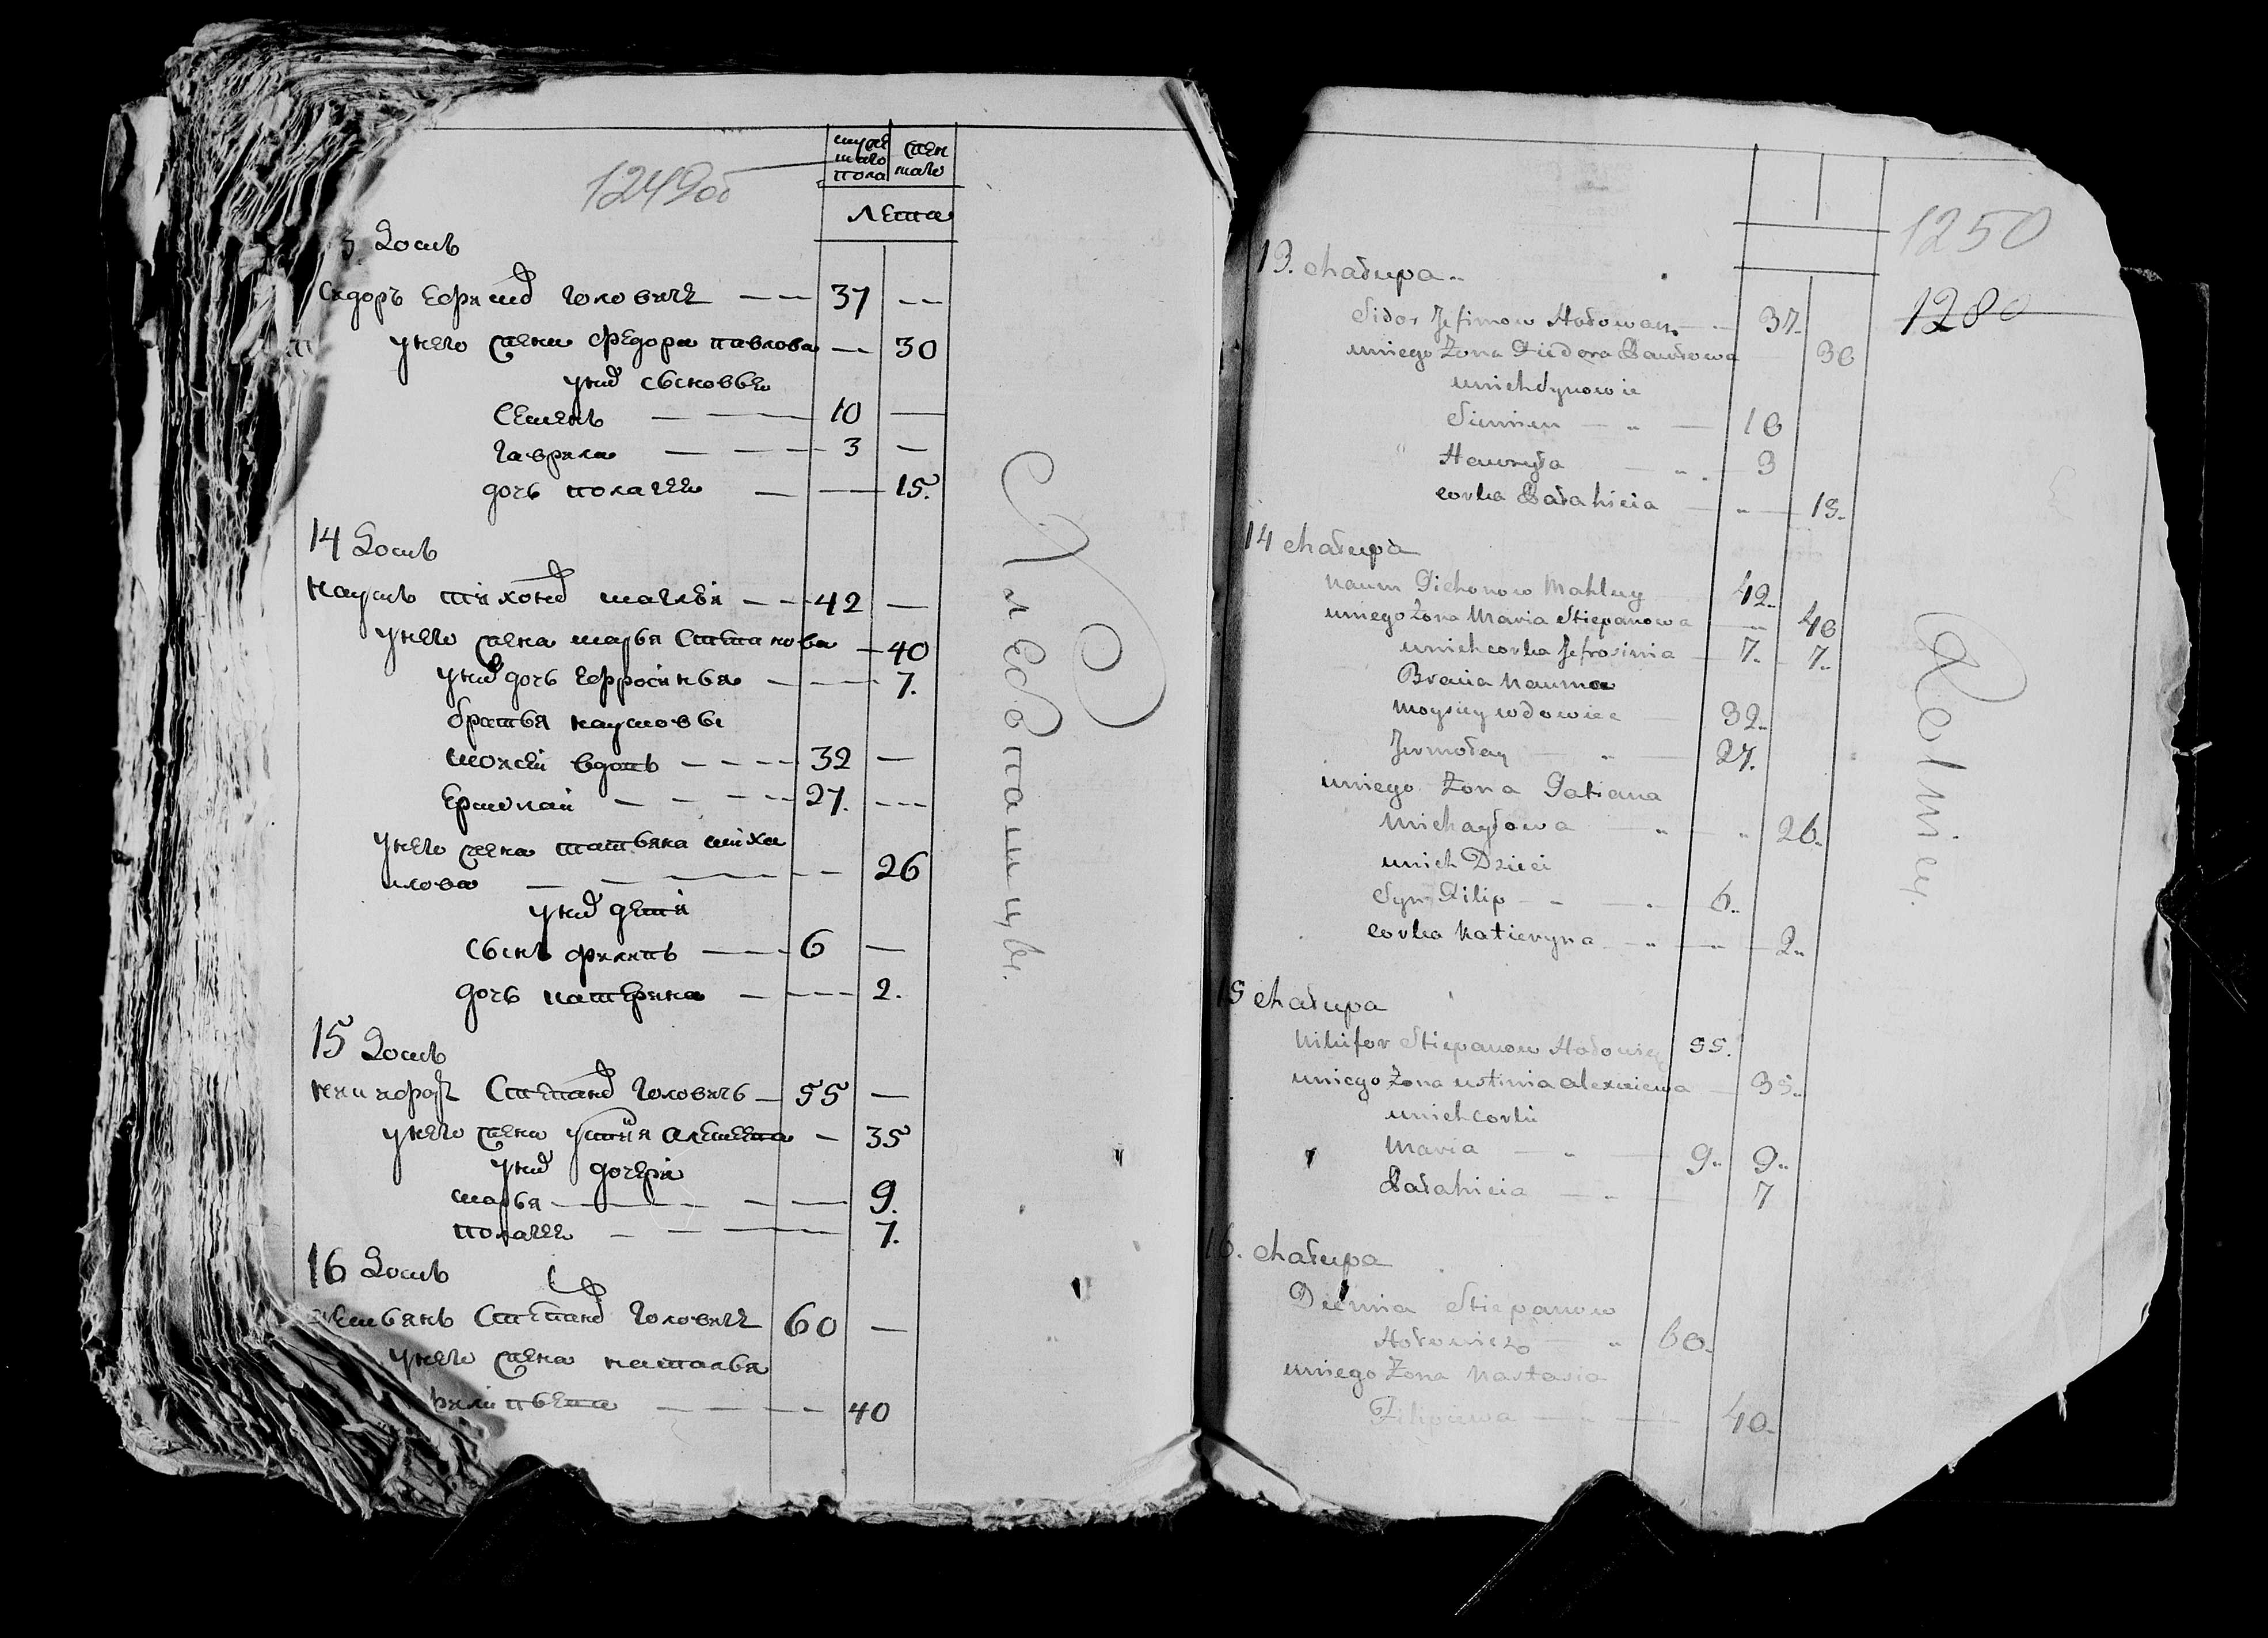 1249об
мужеска пола
женскаго
лета
3 Домъ
Сидоръ Ефимов Головачъ — 37 —
у него жена Федора павлова — 30
у них сыновья
Семенъ — 10 —
Гаврила — 3 —
дочь полагея — 15.
14 Домъ
Наумъ тихонов маглый — 42 —
у него жена марья Степанова — 40
у них дочь Ефросинья — 7.
братья наумовы
моисей вдовъ — 32 —
Ермолай — 27. —
у него жена татьяна михаи
лова — 26
у них дети
сынъ филипъ — 6 —
дочь катерина — 2.
15 Домъ
Никифоръ Степанов Головачъ — 55 —
у него жена устиня алексеева — 35
у них дочери
марья — 9.
полагея — 7.
16 Домъ
Демьянъ Степанов Головачъ 60 —
у него жена наталья
филипьева — 40
Хлебопашцы.
1250
1280
13. chałupa
Sidor Jefimow Hołowacz — 37.
u niego Żona Fiedora Pawłowa 30
u nich synowie
Siemien — 10
Hawryła — 3
corka Pałahieia — 15.
14 chałupa
Naum Tichonow Mahluy 42.
u niego Żona Maria Stiepanowa — 40
u nich corka Jefrosinia — 7. 7.
Bracia Nauma
Moysiey wdowiec — 32.
Jermołay — 27.
u niego Żona Tatiana
Michayłowa — 26.
u nich Dzieci
Syn Filip — 6.
corka Katieryna — 2.
15 chałupa
Nikifor Stiepanow Hołowicz 55.
u niego Żona ustinia alexieiewa — 35.
u nich corki
Maria — 9. 9.
Pałahieia — 7
16. chałupa
Diemia Stiepanow
Hołowicz — 60.
u niego Żona Nastasia
Filipiewa — 40.
Rolnicy.